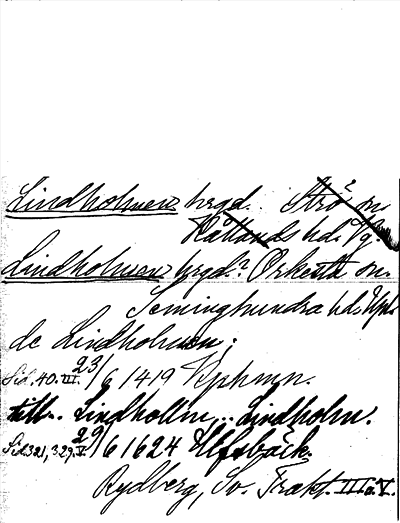 Lindholmen hrgd. Strö sn.
Kållands hd. Vg.
Lindholmen hrgd.? Orkesta sn.
Seminghundra hd. Upl.
de Lindholmen;
Sid. 40. III. 23/6 1419 Kphmn.
till.. Lindhollm.. Lindholm.
Sid 321, 329. V. 29/6 1624 Ulfsbäck.
Rydberg, Sv. Trakt. III o. V.